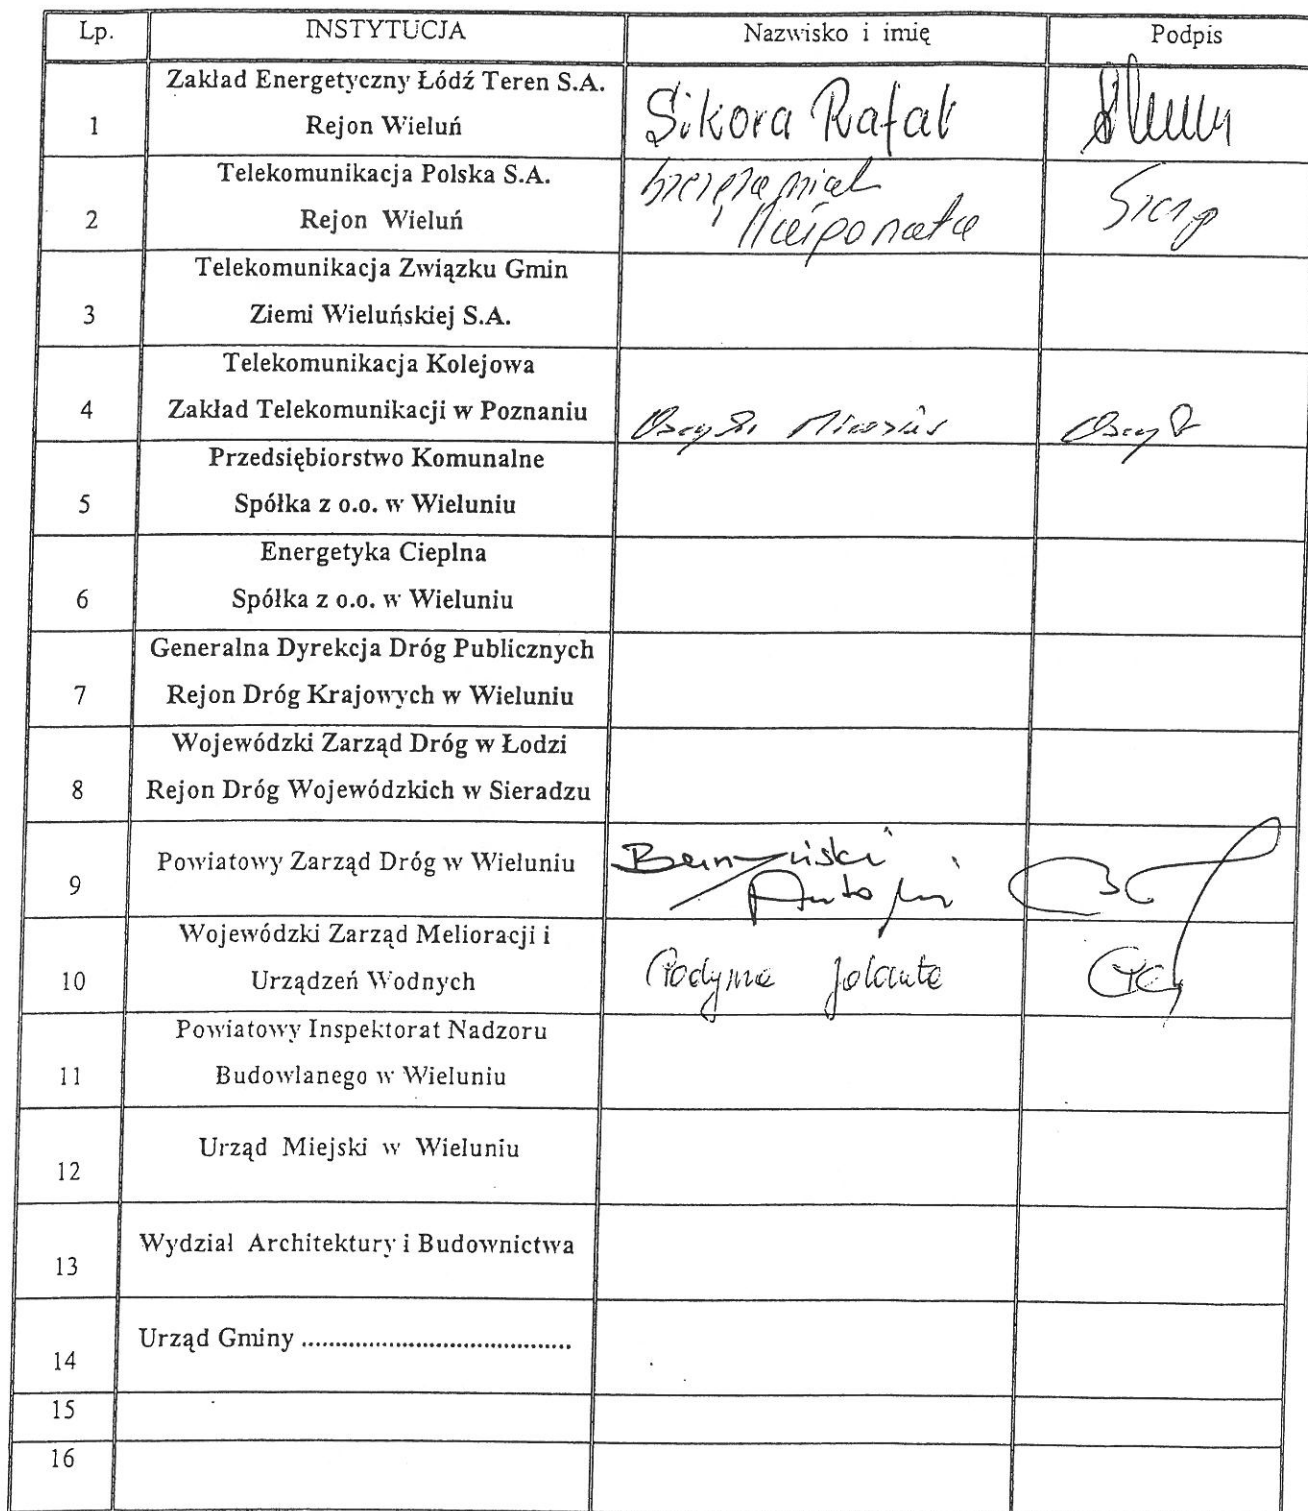 Lp. INSTYTUCJA Nazwisko i imię Podpis
Zakład Energetyczny Łódź Teren S.A.
1 Rejon Wieluń Sikora Rafał
Telekomunikacja Polska S.A.
2 Rejon Wieluń
Telekomunikacja Związku Gmin
3 Ziemi Wieluńskiej S.A.
Telekomunikacja Kolejowa
4 Zakład Telekomunikacji w Poznaniu
Przedsiębiorstwo Komunalne
5 Spółka z o.o. w Wieluniu
Energetyka Cieplna
6 Spółka z o.o. w Wieluniu
Generalna Dyrekcja Dróg Publicznych
7 Rejon Dróg Krajowych w Wieluniu
Wojewódzki Zarząd Dróg w Łodzi
8 Rejon Dróg Wojewódzkich w Sieradzu
9 Powiatowy Zarząd Dróg w Wieluniu
Antoni
Wojewódzki Zarząd Melioracji i
10 Urządzeń Wodnych Jolanta
Powiatowy Inspektorat Nadzoru
11 Budowlanego w Wieluniu
12 Urząd Miejski w Wieluniu
13 Wydział Architektury i Budownictwa
14 Urząd Gminy ........................................
15
16